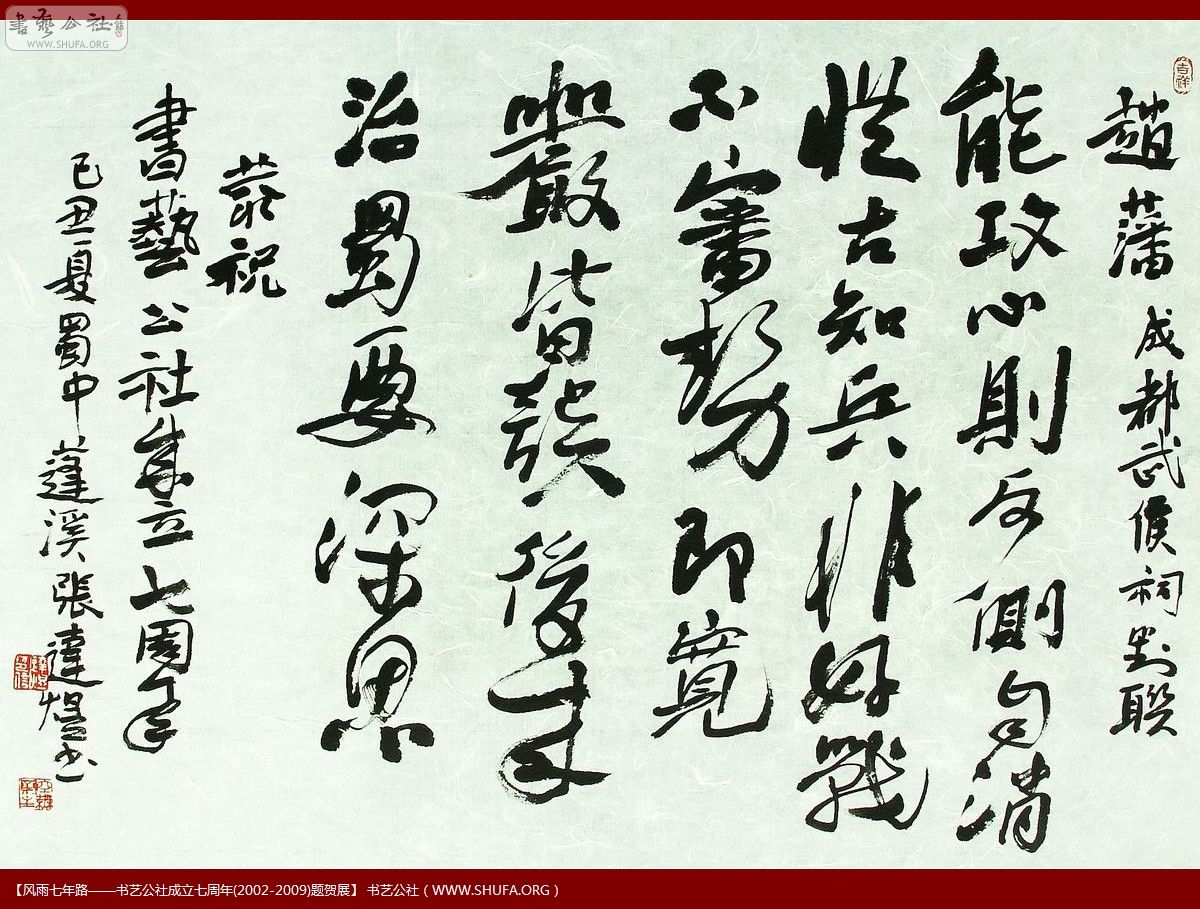 書藝公社
WWW.SHUFA.ORG
吉祥
趙藩成都武侯祠對聯
能攻心則反側自消
從古知兵非好戰
不審勢即寬
嚴皆誤後来
治蜀要深思
恭祝
書藝公社成立七周年
己丑夏蜀中蓬溪張達煜书
【风雨七年路——书艺公社成立七周年(2002-2009)题贺展】 书艺公社（WWW.SHUFA.ORG）